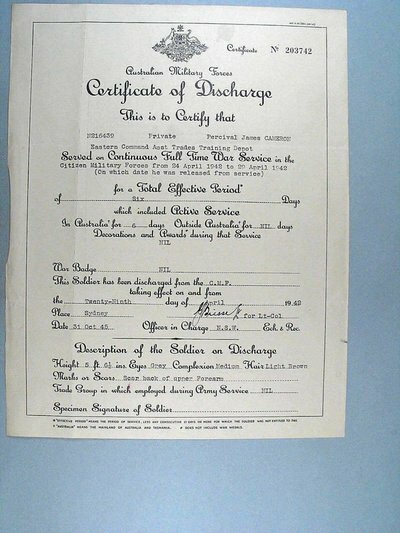 Certificate No 203742
Australian Military Forces
Certificate of Discharge
This is to Certify that
N216439 Private Percival James CAMERON
Eastern Command Asst Trades Training Depot
Served on Continuous Full Time War Service in the
Citizen Military Forces from 24 April 1942 to 29 April 1942
(On which date he was released from service)
for a Total Effective Period*
of Six Days
which included Active Service
In Australia† for 6 days Outside Australia† for NIL days
Decorations and Awards≠ during that Service
NIL
War Badge NIL
This Soldier has been discharged from the C.M.F.
taking effect on and from
the Twenty-Ninth day of April 1942
Place Sydney for Lt-Col
Date 31 Oct 45 Officer in Charge N.S.W. Ech & Rec.
Description of the Soldier on Discharge
Height 5 ft 6½ ins. Eyes Gray Complexion Medium Hair Light Brown
Marks or Scars Scar back of upper Forearm
Trade Group in which employed during Army Service NIL
Specimen Signature of Soldier
* "EFFECTIVE PERIOD" MEANS THE PERIOD OF SERVICE, LESS ANY CONSECUTIVE 21 DAYS OR MORE FOR WHICH THE SOLDIER WAS NOT ENTITLED TO PAY
† "AUSTRALIA" MEANS THE MAINLAND OF AUSTRALIA AND TASMANIA. ≠ DOES NOT INCLUDE WAR MEDALS.